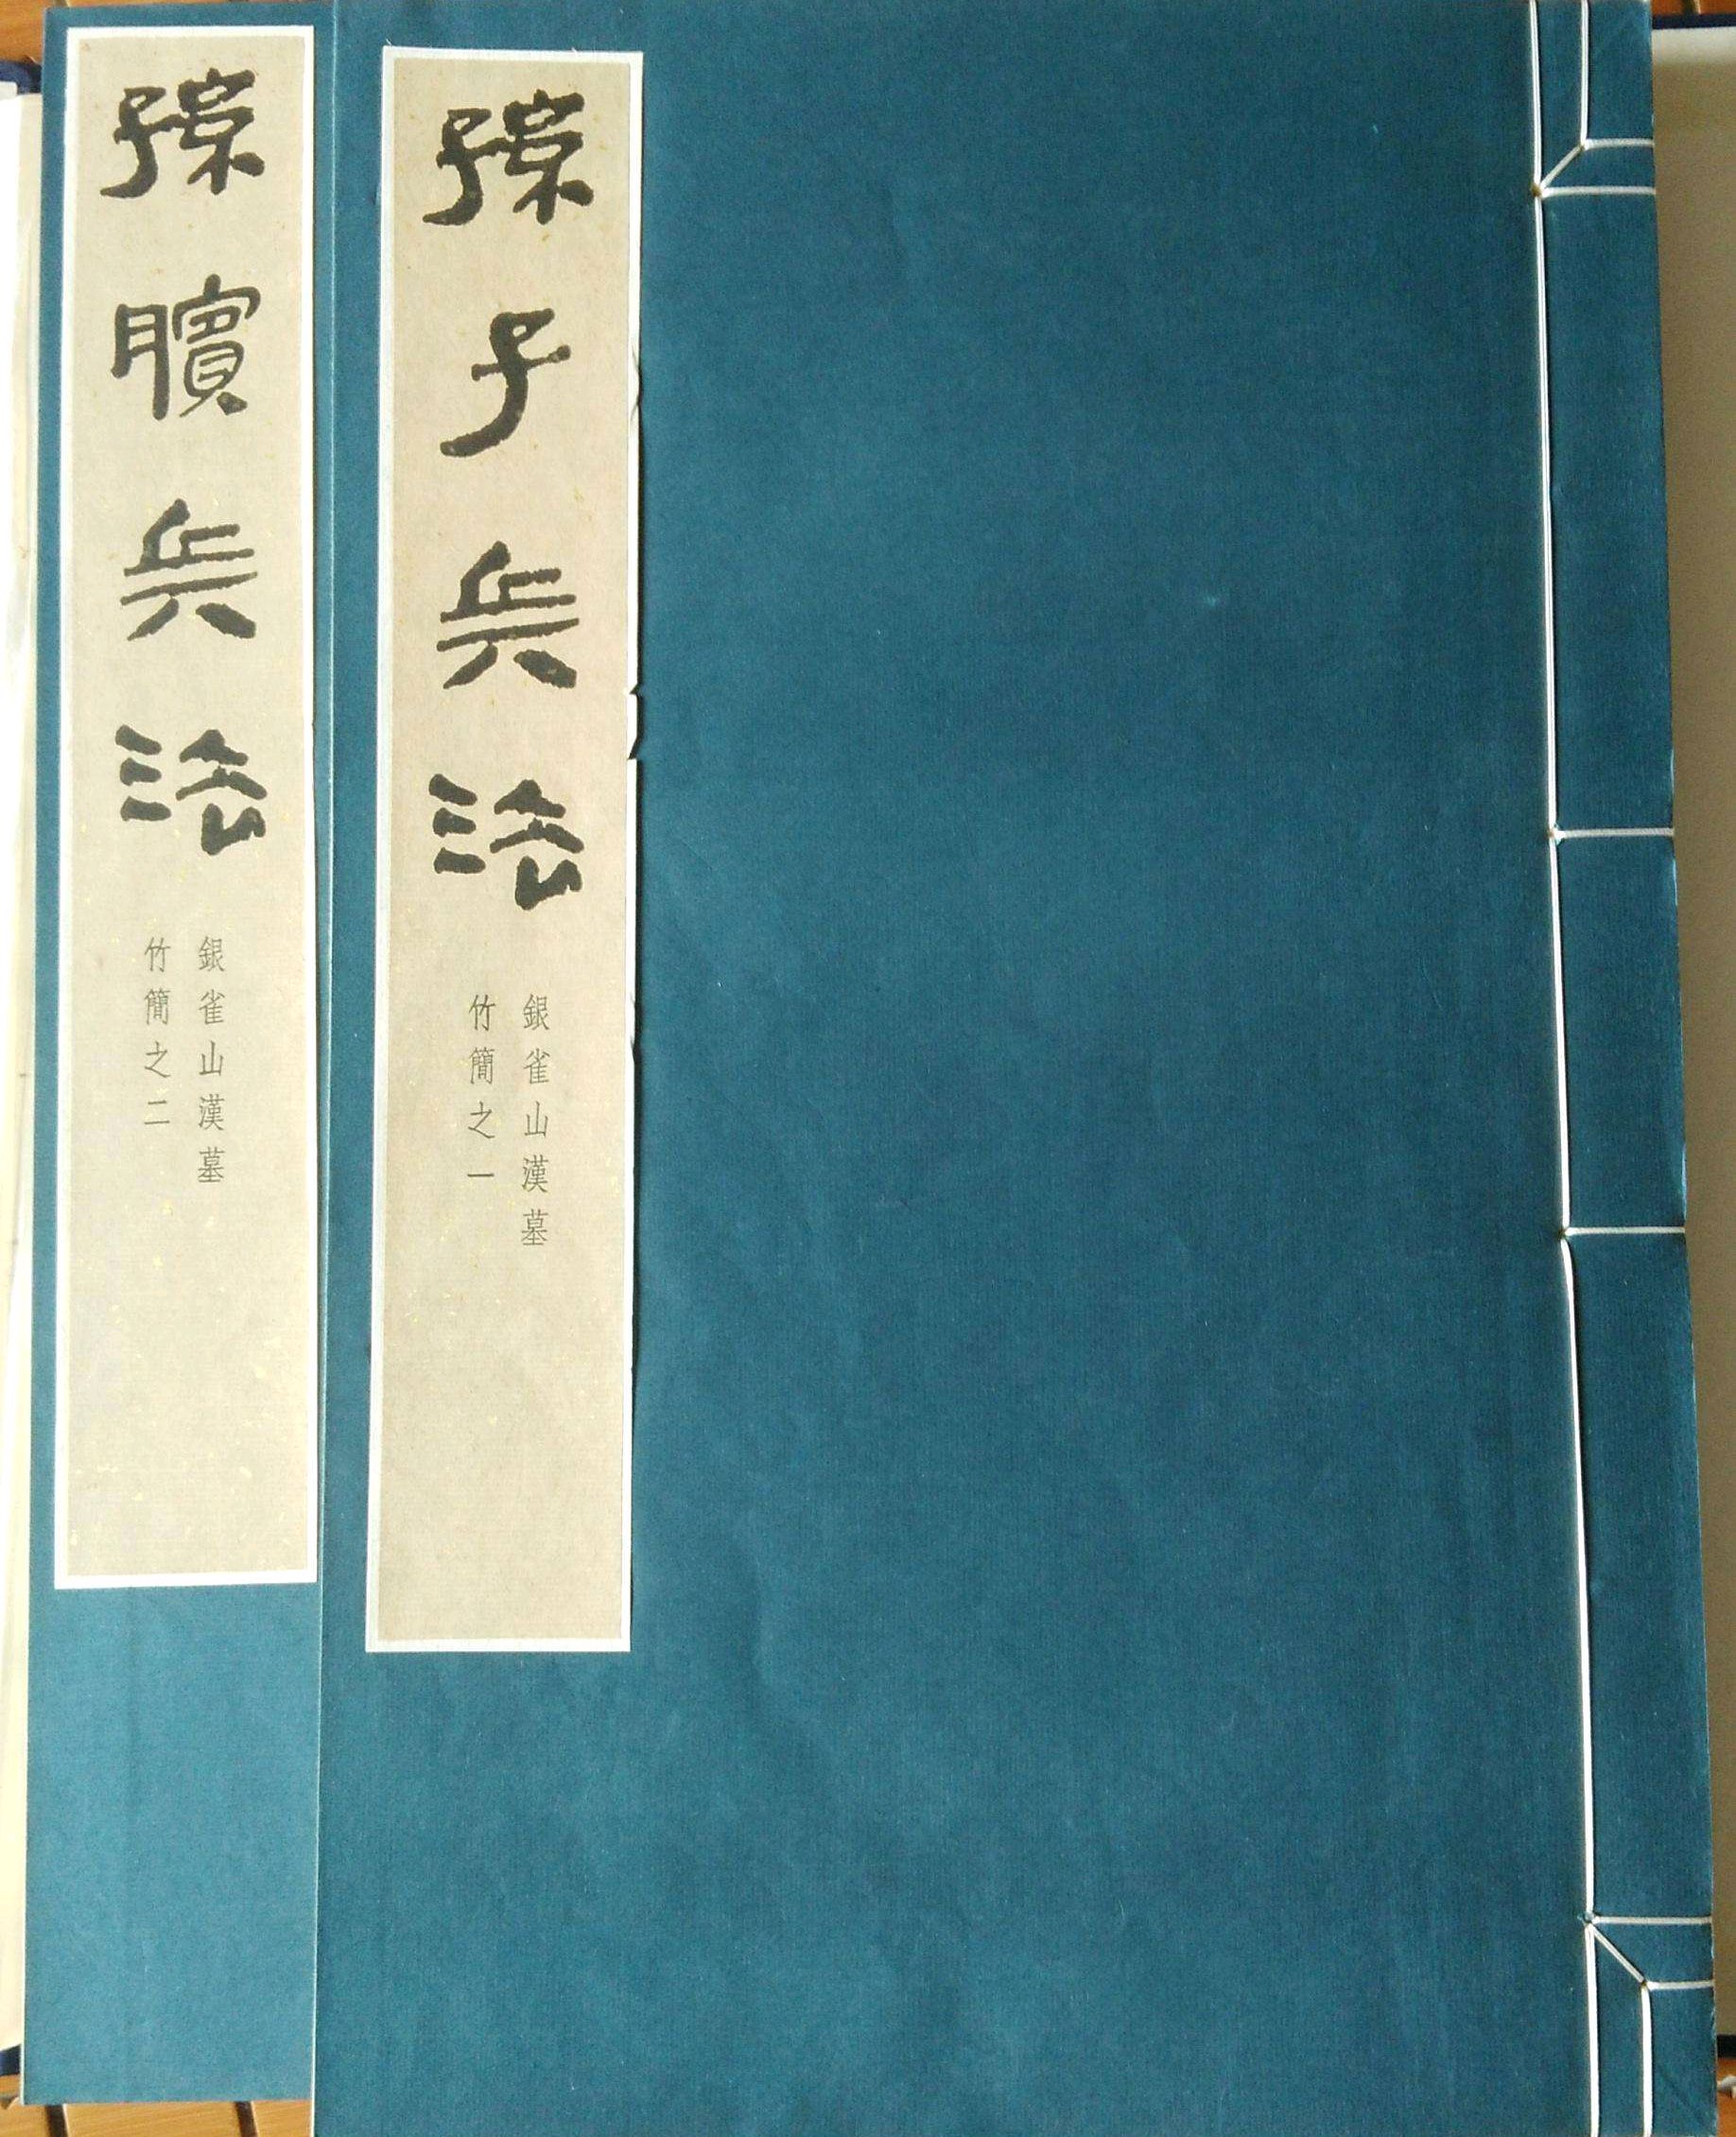 孫子兵法
銀雀山漢墓
竹簡之一
孫臏兵法
銀雀山漢墓
竹簡之二